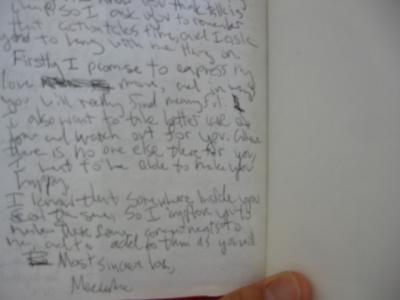 you think talking
So I ask you to remember
that action takes time, and I ask
you to hang with me. Hang on.
Firstly I promise to express my
love more, and in ways
you will really find meaningful.
I also want to take better care of
you and watch out for you. When
there is no one else there for you
I want to be able to make you
happy.
I know that somewhere inside you
feel the same. So I implore you to
make these same commitments to
me, and to add to them as you will.
Most sincere love,